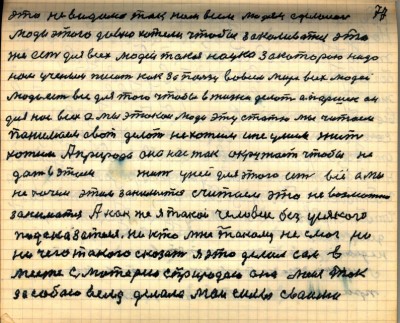 это невидимо так нам всем людям сделали
люди этого давно хотели чтобы заниматся это
же ест для всех людей такая наука за которою надо
нам ученым писат как за палец во всем мире всех людей
люди ест все для того чтобы в жизни делат а
для нас всех а мы этакая люди эту статью мы читаем
панимаем свой делат нехотим и не умием жит
хотим А природа она нас так окружает чтобы не
дат в этом жит у ней для этого ест всё а мы
не хочем этим заниматся считаем это не возможно
заниматся А как же я такой человек без усякого
подсказателя. ни кто мне такому не смог но
ни чего такого сказат я это делал сам в
месте с матерю с природою она моя так
за собою вела делала мои силы своими